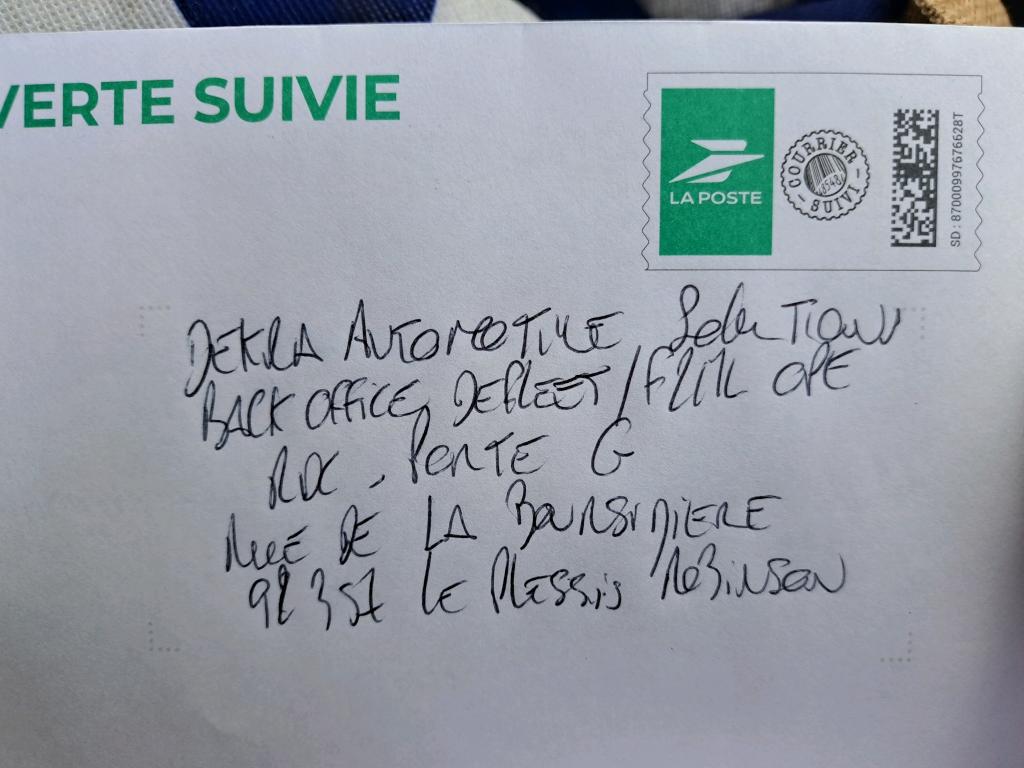 VERTE SUIVIE
LA POSTE
COURRIER SUIVI
SD : 87000997676628T
DEKRA AUTOMOTIVE Solutions
BACK OFFICE DEFLEET /
RDC - PORTE G
RUE DE LA BOURSIDIERE
92357 LE PLESSIS ROBINSON